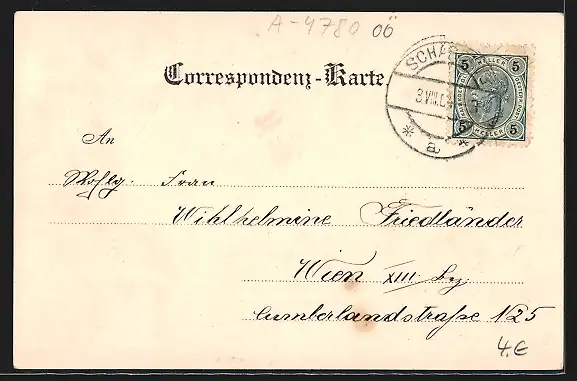 A-4780 OÖ
Correspondenz-Karte
SCHÄR
3.VIII.0
* a *
5 HELLER 5
5 HELLER 5
An
Wohlg. Frau
Wihlhelmine Friedländer
Wien XIII By.
Cumberlandstraße 125
4.€